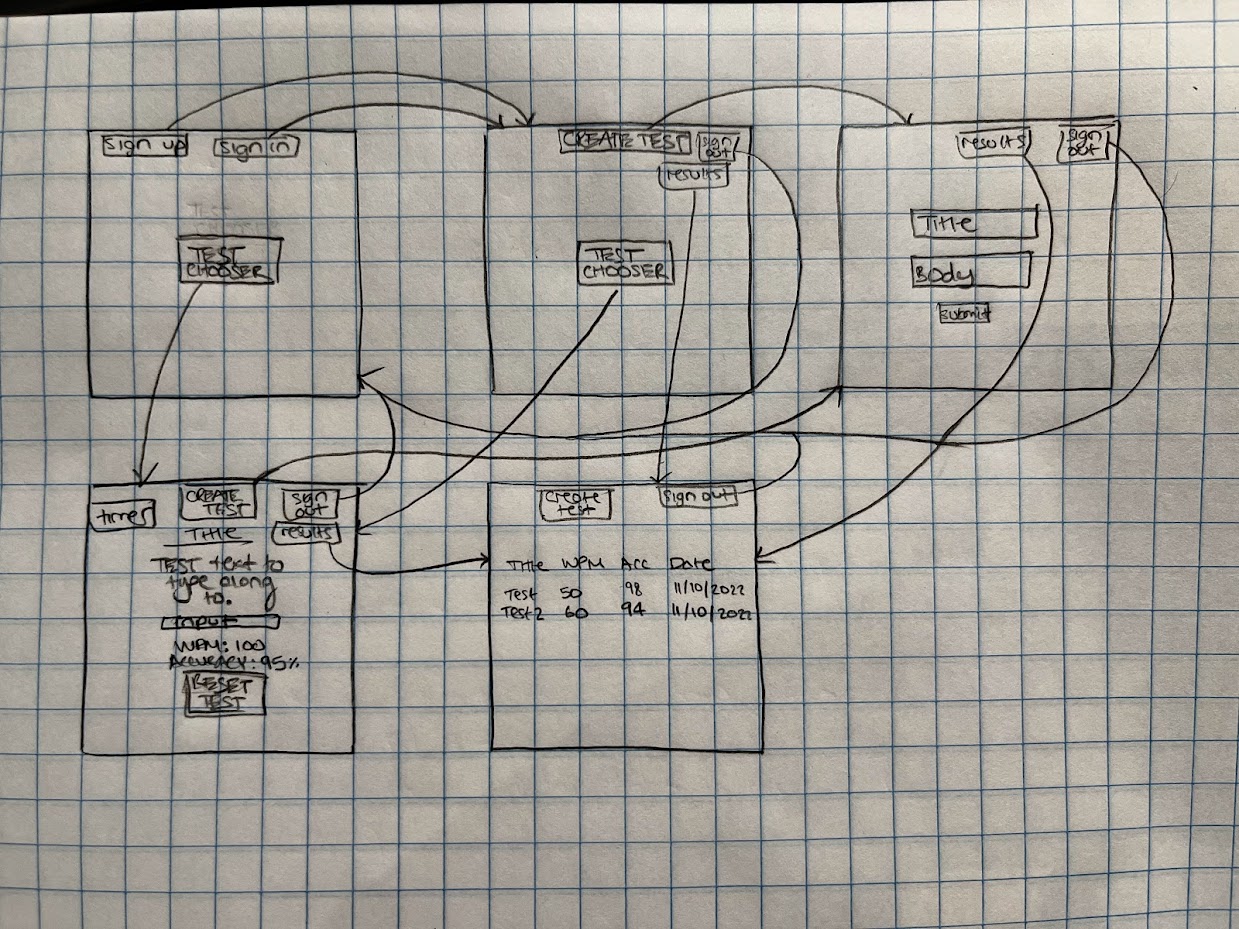 sign up
sign in
TEST
TEST
CHOOSER
CREATE TEST
sign
out
results
TEST
CHOOSER
results
sign
out
Title
Body
submit
timer
CREATE
TEST
sign
out
results
TITLE
TEST text to
type along
to.
input
WPM: 100
Accuracy: 95%
RESET
TEST
create
test
sign out
Title WPM Acc Date
Test 50 98 11/10/2022
Test 2 60 94 11/10/2022